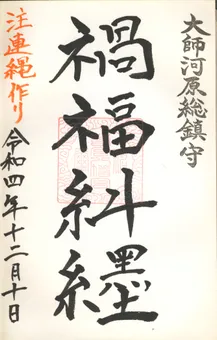 大師河原総鎮守
禍福紏纆
注連縄作り
令和四年十二月十日